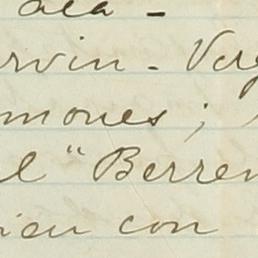 ala -
rvin - Verg
mones ;
el " Berren
ien con